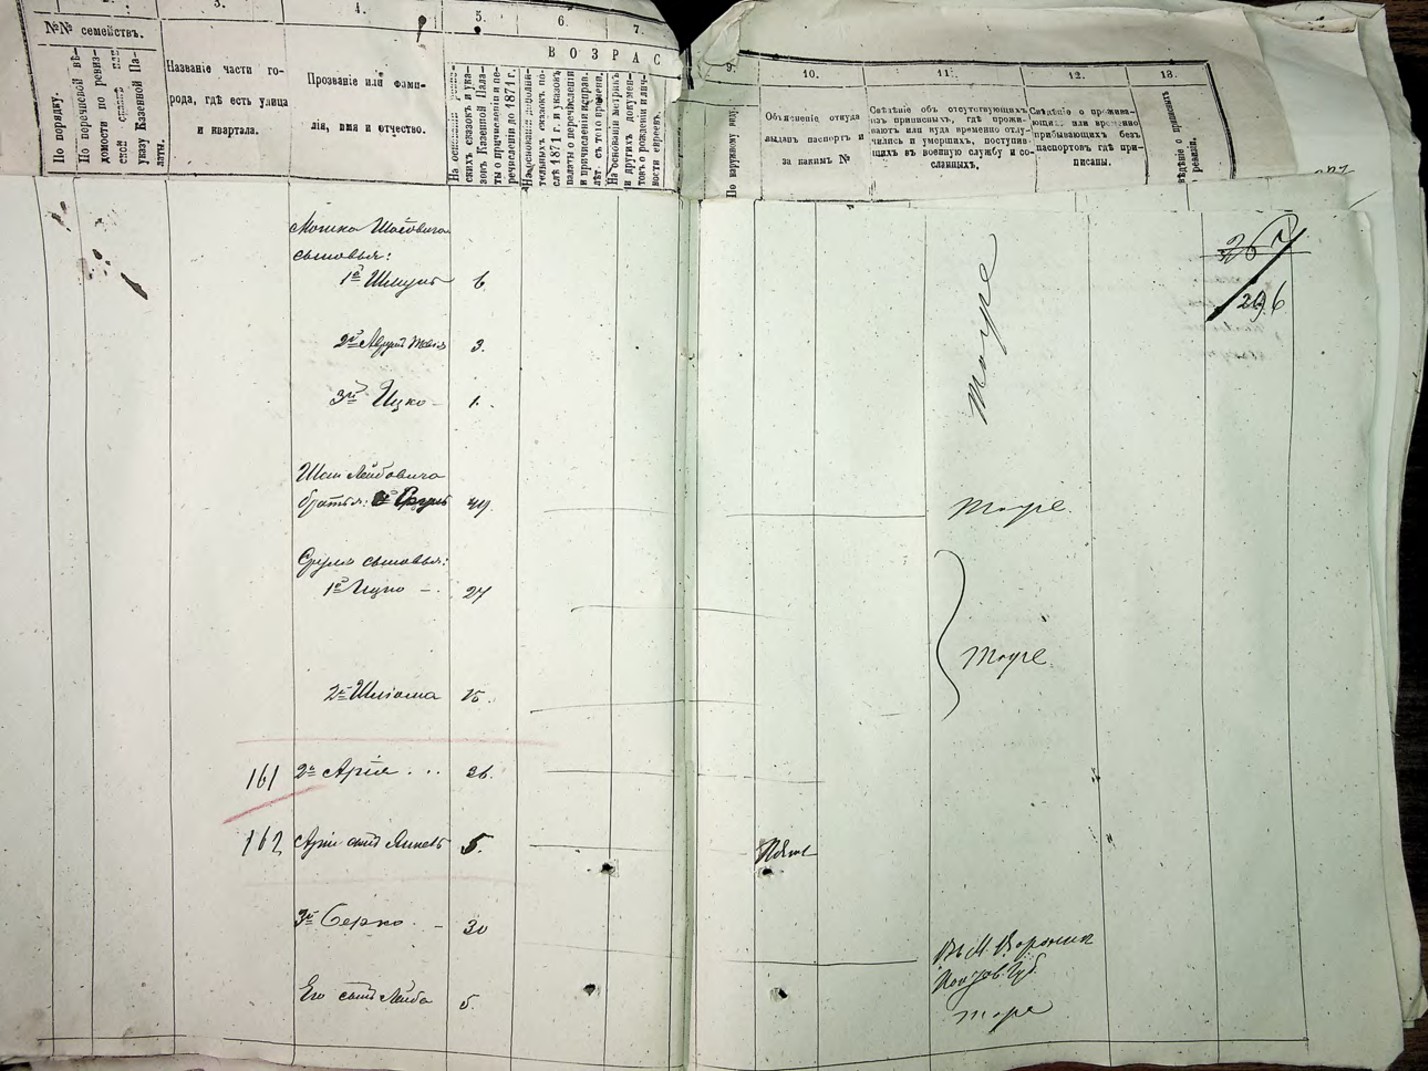 3.
4.
5.
6.
7.
№№ семействъ.
По порядку.
По перечневой вѣ-
домости по ревиз-
ской сказкѣ или
указу Казенной Па-
латы.
Названіе части го-
рода, гдѣ есть улица
и квартала.
Прозваніе или фами-
лія, имя и отчество.
ВОЗРАС
На основаніи ревиз-
скихъ сказокъ и ука-
зокъ Казенной Пала-
ты о причисленіи и пе-
речисленіи до 1871 г.
На основаніи дополни-
тельныхъ сказокъ по-
слѣ 1871 г. и указокъ
палаты о перечисленіи
и причисленіи исправ.
лѣт. съ того времени.
На основаніи метрикъ
и другихъ докумен-
товъ о рожденіи и лич-
ности евреевъ.
9.
10.
11.
12.
13.
По наружному виду.
Объясненіе откуда
выданъ паспортъ и
за какимъ №
Свѣдѣніе объ отсутствующихъ
изъ приписныхъ, гдѣ прожи-
ваютъ или куда временно отлу-
чились и умершихъ, поступив-
щихъ въ военную службу и со-
сланныхъ.
Свѣдѣніе о прожива-
ющихъ или временно
прибывающихъ безъ
паспортовъ гдѣ при-
писаны.
вѣдѣніе о пришлыхъ
ревизіи.
Мошка Шаевича
сыновья:
1й Шмуль 6
2й 3.
3й Ицко - 1.
Шаи Лейбовича
братья: Сруль 49.
Сруля сыновья:
1й Ицко - . 27
2й Шліома 15.
161 2й Арія . . . 26.
162 Аріи сынъ Янкель 5.
3й Берко - 30
Его сынъ Лейба 5.
267
296
Тоуре
Тоуре.
Тоуре.
Въ М.
Губ.